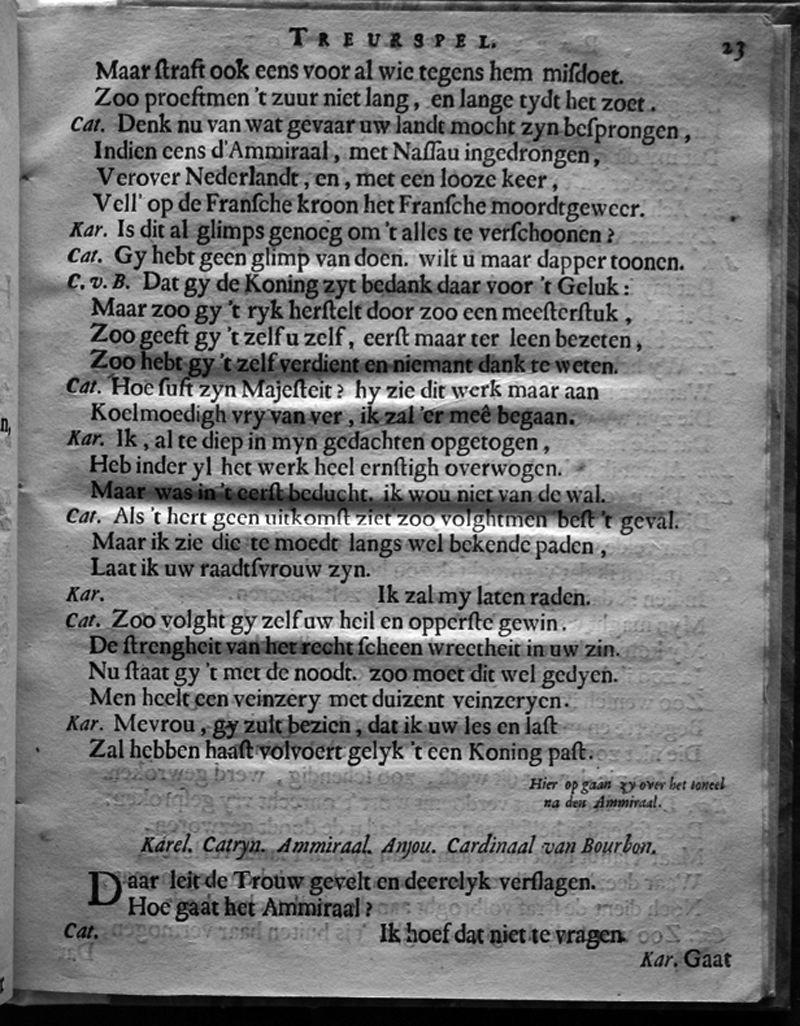 TREURSPEL. 23
Maar ſtraft ook eens voor al wie tegens hem miſdoet.
Zoo proeftmen 't zuur niet lang, en lange tydt het zoet.
Cat. Denk nu van wat gevaar uw landt mocht zyn beſprongen,
Indien eens d'Ammiraal, met Naſſau ingedrongen,
Verover Nederlandt, en, met een looze keer,
Vell' op de Franſche kroon het Franſche moordtgeweer.
Kar. Is dit al glimps genoeg om 't alles te verſchoonen?
Cat. Gy hebt geen glimp van doen. wilt u maar dapper toonen.
C. v. B. Dat gy de Koning zyt bedank daar voor 't Geluk:
Maar zoo gy 't ryk herſtelt door zoo een meeſterſtuk,
Zoo geeft gy 't zelf u zelf, eerſt maar ter leen bezeten,
Zoo hebt gy 't zelf verdient en niemant dank te weten.
Cat. Hoe ſuft zyn Majeſteit? hy zie dit werk maar aan
Koelmoedigh vry van ver, ik zal 'er meê begaan.
Kar. Ik, al te diep in myn gedachten opgetogen,
Heb inder yl het werk heel ernſtigh overwogen.
Maar was in 't eerſt beducht. ik wou niet van de wal.
Cat. Als 't hert geen uitkomſt ziet zoo volghtmen beſt 't geval.
Maar ik zie die te moedt langs wel bekende paden,
Laat ik uw raadtſvrouw zyn.
Kar. Ik zal my laten raden.
Cat. Zoo volght gy zelf uw heil en opperſte gewin.
De ſtrengheit van het recht ſcheen wreetheit in uw zin.
Nu ſtaat gy 't met de noodt. zoo moet dit wel gedyen.
Men heelt een veinzery met duizent veinzeryen.
Kar. Mevrou, gy zult bezien, dat ik uw les en laſt
Zal hebben haaſt volvoert gelyk 't een Koning paſt.
Hier op gaan zy over het toneel
na den Ammiraal.
Karel. Catryn. Ammiraal. Anjou. Cardinaal van Bourbon.
Daar leit de Trouw gevelt en deerelyk verſlagen.
Hoe gaat het Ammiraal?
Cat. Ik hoef dat niet te vragen.
Kar. Gaat